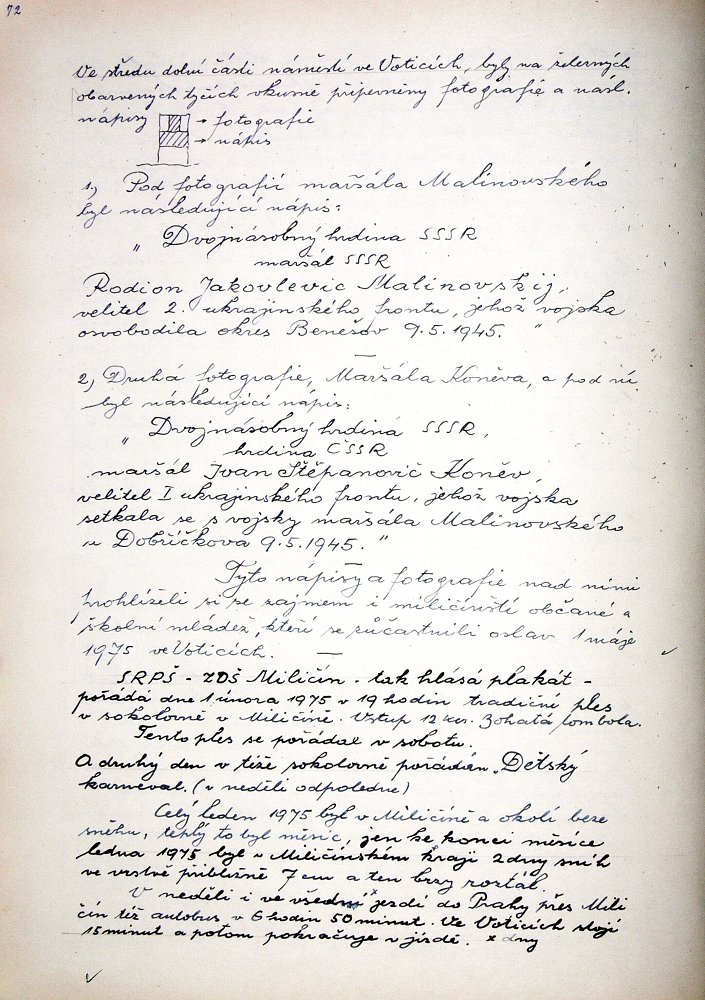 72
Ve středu dolní části náměstí ve Voticích, byly na železných
obarvených tyčích vkusně připevněny fotografie a násl.
nápisy → fotografie
→ nápis
1, Pod fotografií maršála Malinovského
byl následující nápis:
„ Dvojnásobný hrdina SSSR
maršál SSSR
Rodion Jakovlevic Malinovskij,
velitel 2. ukrajinského frontu, jehož vojska
osvobodila okres Benešov 9.5.1945. "
—
2, Druhá fotografie, Maršála Koněva, a pod ní
byl následující nápis:
„ Dvojnásobný hrdina SSSR,
hrdina ČSSR
maršál Ivan Štěpanovič Koněv,
velitel I ukrajinského frontu, jehož vojska
setkala se s vojsky maršála Malinovského
u Dobříčkova 9.5.1945. "
—
Tyto nápisy a fotografie nad nimi
prohlíželi si se zájmem i miličínští občané a
školní mládež, kteří se zůčastnili oslav 1 máje
1975 ve Voticích. —
SRPŠ - ZDŠ Miličín - tak hlásá plakát -
pořádá dne 1. února 1975 v 19 hodin tradiční ples
v sokolovně v Miličíně. Vstup 12 kčs. Bohatá tombola.
Tento ples se pořádal v sobotu.
A druhý den v téže sokolovně pořádán „Dětský
karneval. (v neděli odpoledne)
Celý leden 1975 byl v Miličíně a okolí beze
sněhu, teplý to byl měsíc, jen ke konci měsíce
ledna 1975 byl v Miličínském kraji 2 dny sníh
ve vrstvě přibližně 7 cm a ten brzy roztál.
V neděli i ve všední x jezdí do Prahy přes Mili
čín též autobus v 6 hodin 50 minut. Ve Voticích stojí
15 minut a potom pokračuje v jízdě. x dny